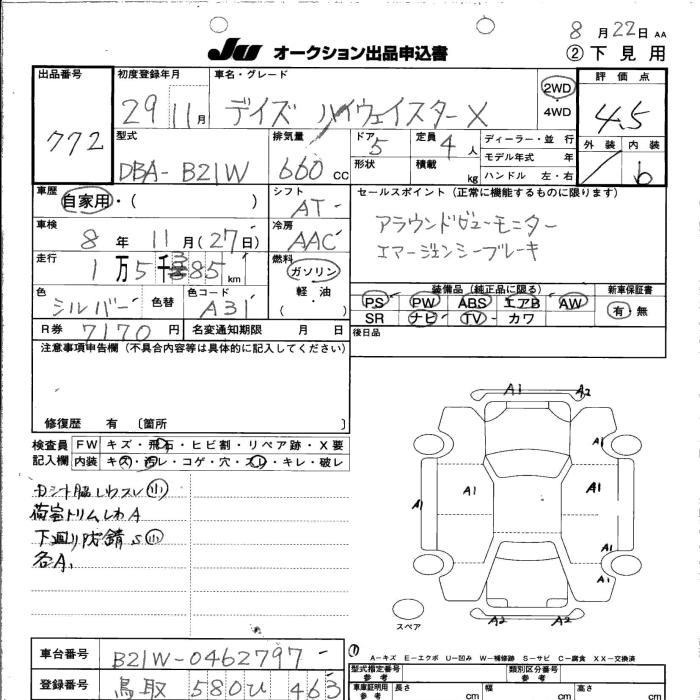 8月22日 AA
JU オークション出品申込書 ②下見用
出品番号 初度登録年月 車名・グレード 評価点
772 29 11月 デイズ ハイウェイスターX 2WD 4WD 4.5
型式 排気量 ドア 定員 ディーラー・並行 外装 内装
DBA-B21W 660cc 5 4人 モデル年式 年
形状 積載 kg ハンドル 左・右 b
車歴 自家用・( ) シフト AT セールスポイント(正常に機能するものに限ります)
車検 8年11月(27日) 冷房 AAC アラウンドビューモニター
エマージェンシーブレーキ
走行 1万5千385km 燃料 ガソリン 軽・油 ( )
装備品(純正品に限る) 新車保証書
色 シルバー 色替 色コード A31 PS PW ABS エアB AW 有・無
SR ナビ TV カワ
R券 7170円 名変通知期限 月 日 後日品
注意事項申告欄(不具合内容等は具体的に記入してください)
修復歴 有 〔箇所 〕
検査員記入欄 FW キズ・飛石・ヒビ割・リペア跡・X要
内装 キズ・汚レ・コゲ・穴・スレ・キレ・破レ
シート脇 スレ 小
荷室トリムしわA
下廻り防錆S小
各A1
A1 A2
A1
A1 A1 A1
A1
A1
A2 A2
スペア
A-キズ E-エクボ U-凹み W-補修跡 S-サビ C-腐食 XX-交換済
車台番号 B21W-0462797
型式指定番号 参考 類別区分番号 参考
登録番号 鳥取 580 ひ 463
車庫証明用 参考 長さ cm 幅 cm 高さ cm